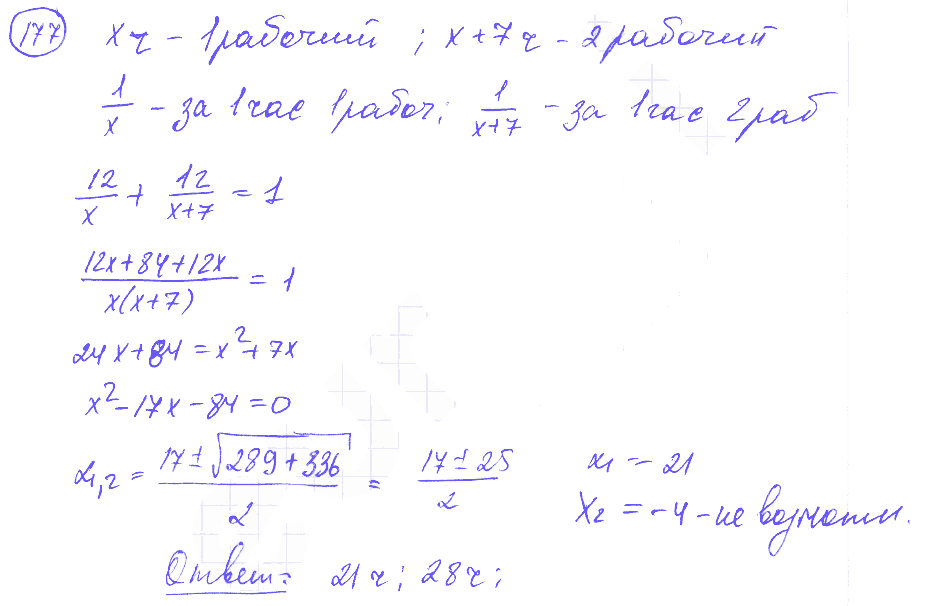 177 x ч – 1 рабочий ; x+7 ч – 2 рабочий
1/x – за 1 час 1 рабоч; 1/(x+7) – за 1 час 2 раб
12/x + 12/(x+7) = 1
(12x+84+12x)/(x(x+7)) = 1
24x+84 = x²+7x
x²–17x–84=0
x₁,₂ = (17±√(289+336))/2 = (17±25)/2
x₁ = 21
x₂ = –4 – не возможн.
Ответ: 21 ч; 28 ч;